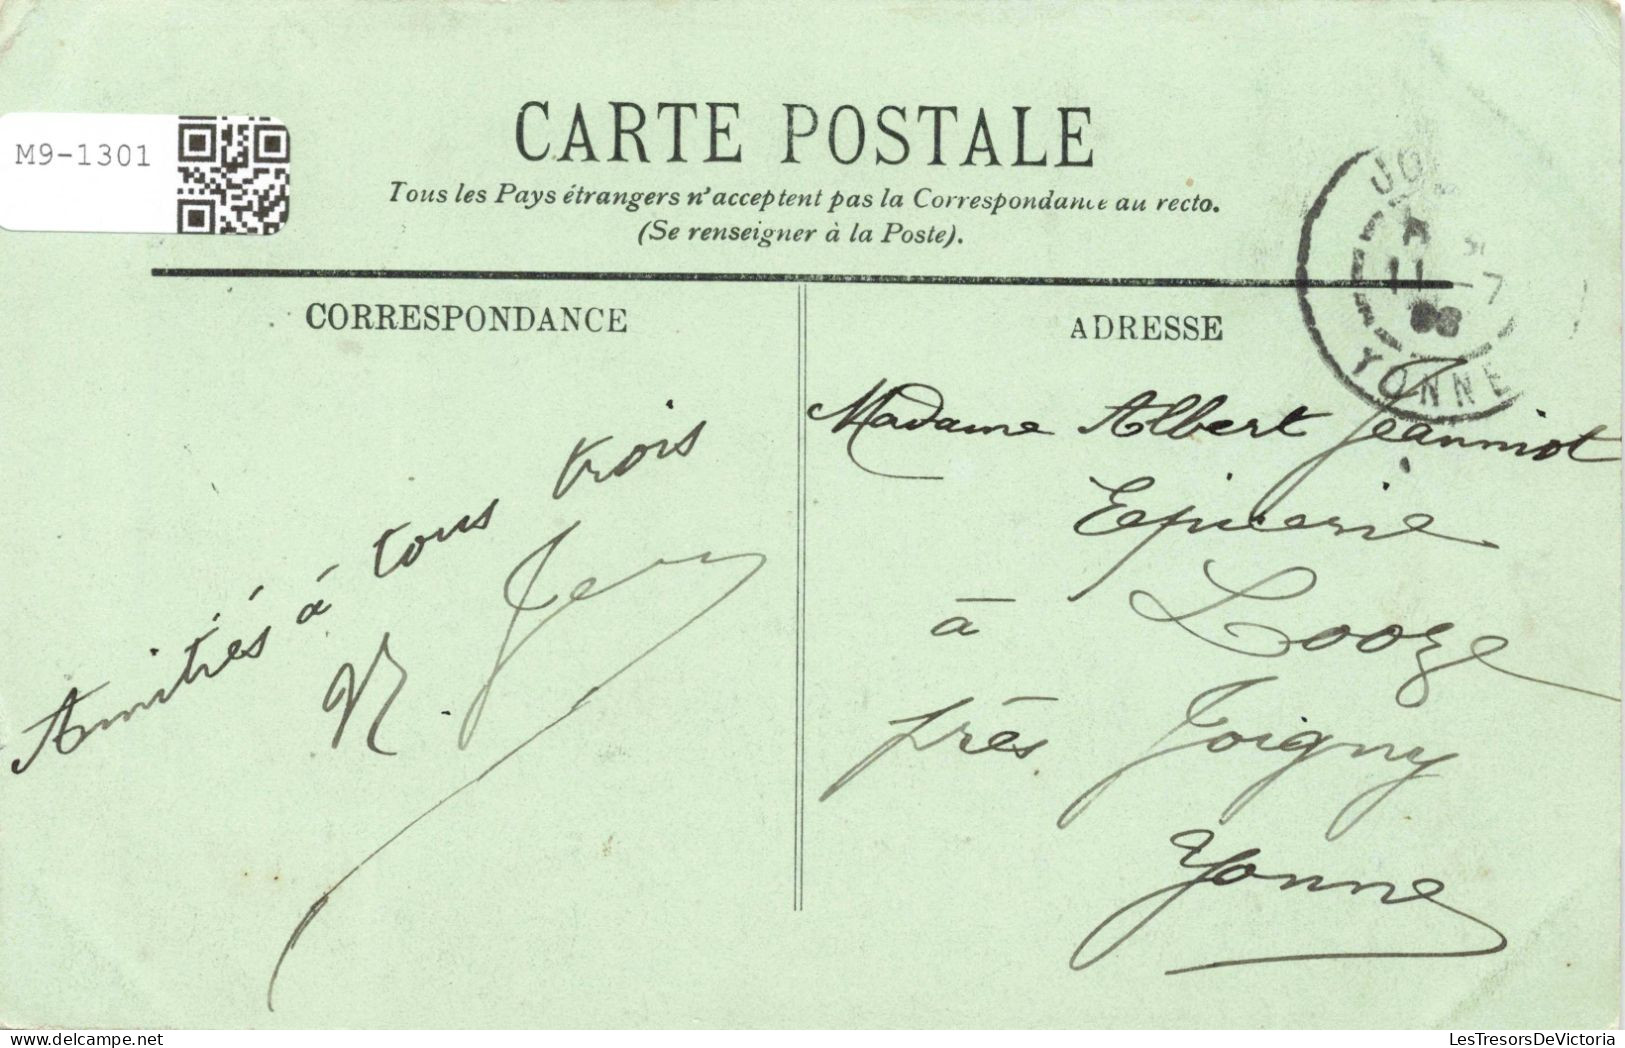 M9-1301
CARTE POSTALE
Tous les Pays étrangers n'acceptent pas la Correspondance au recto.
(Se renseigner à la Poste).
CORRESPONDANCE
Amitiés à tous trois
ADRESSE
11 - 7
YONNE
Madame Albert Jeanniot
Epicerie
à Looze
près Joigny
Yonne
LesTresorsDeVictoria